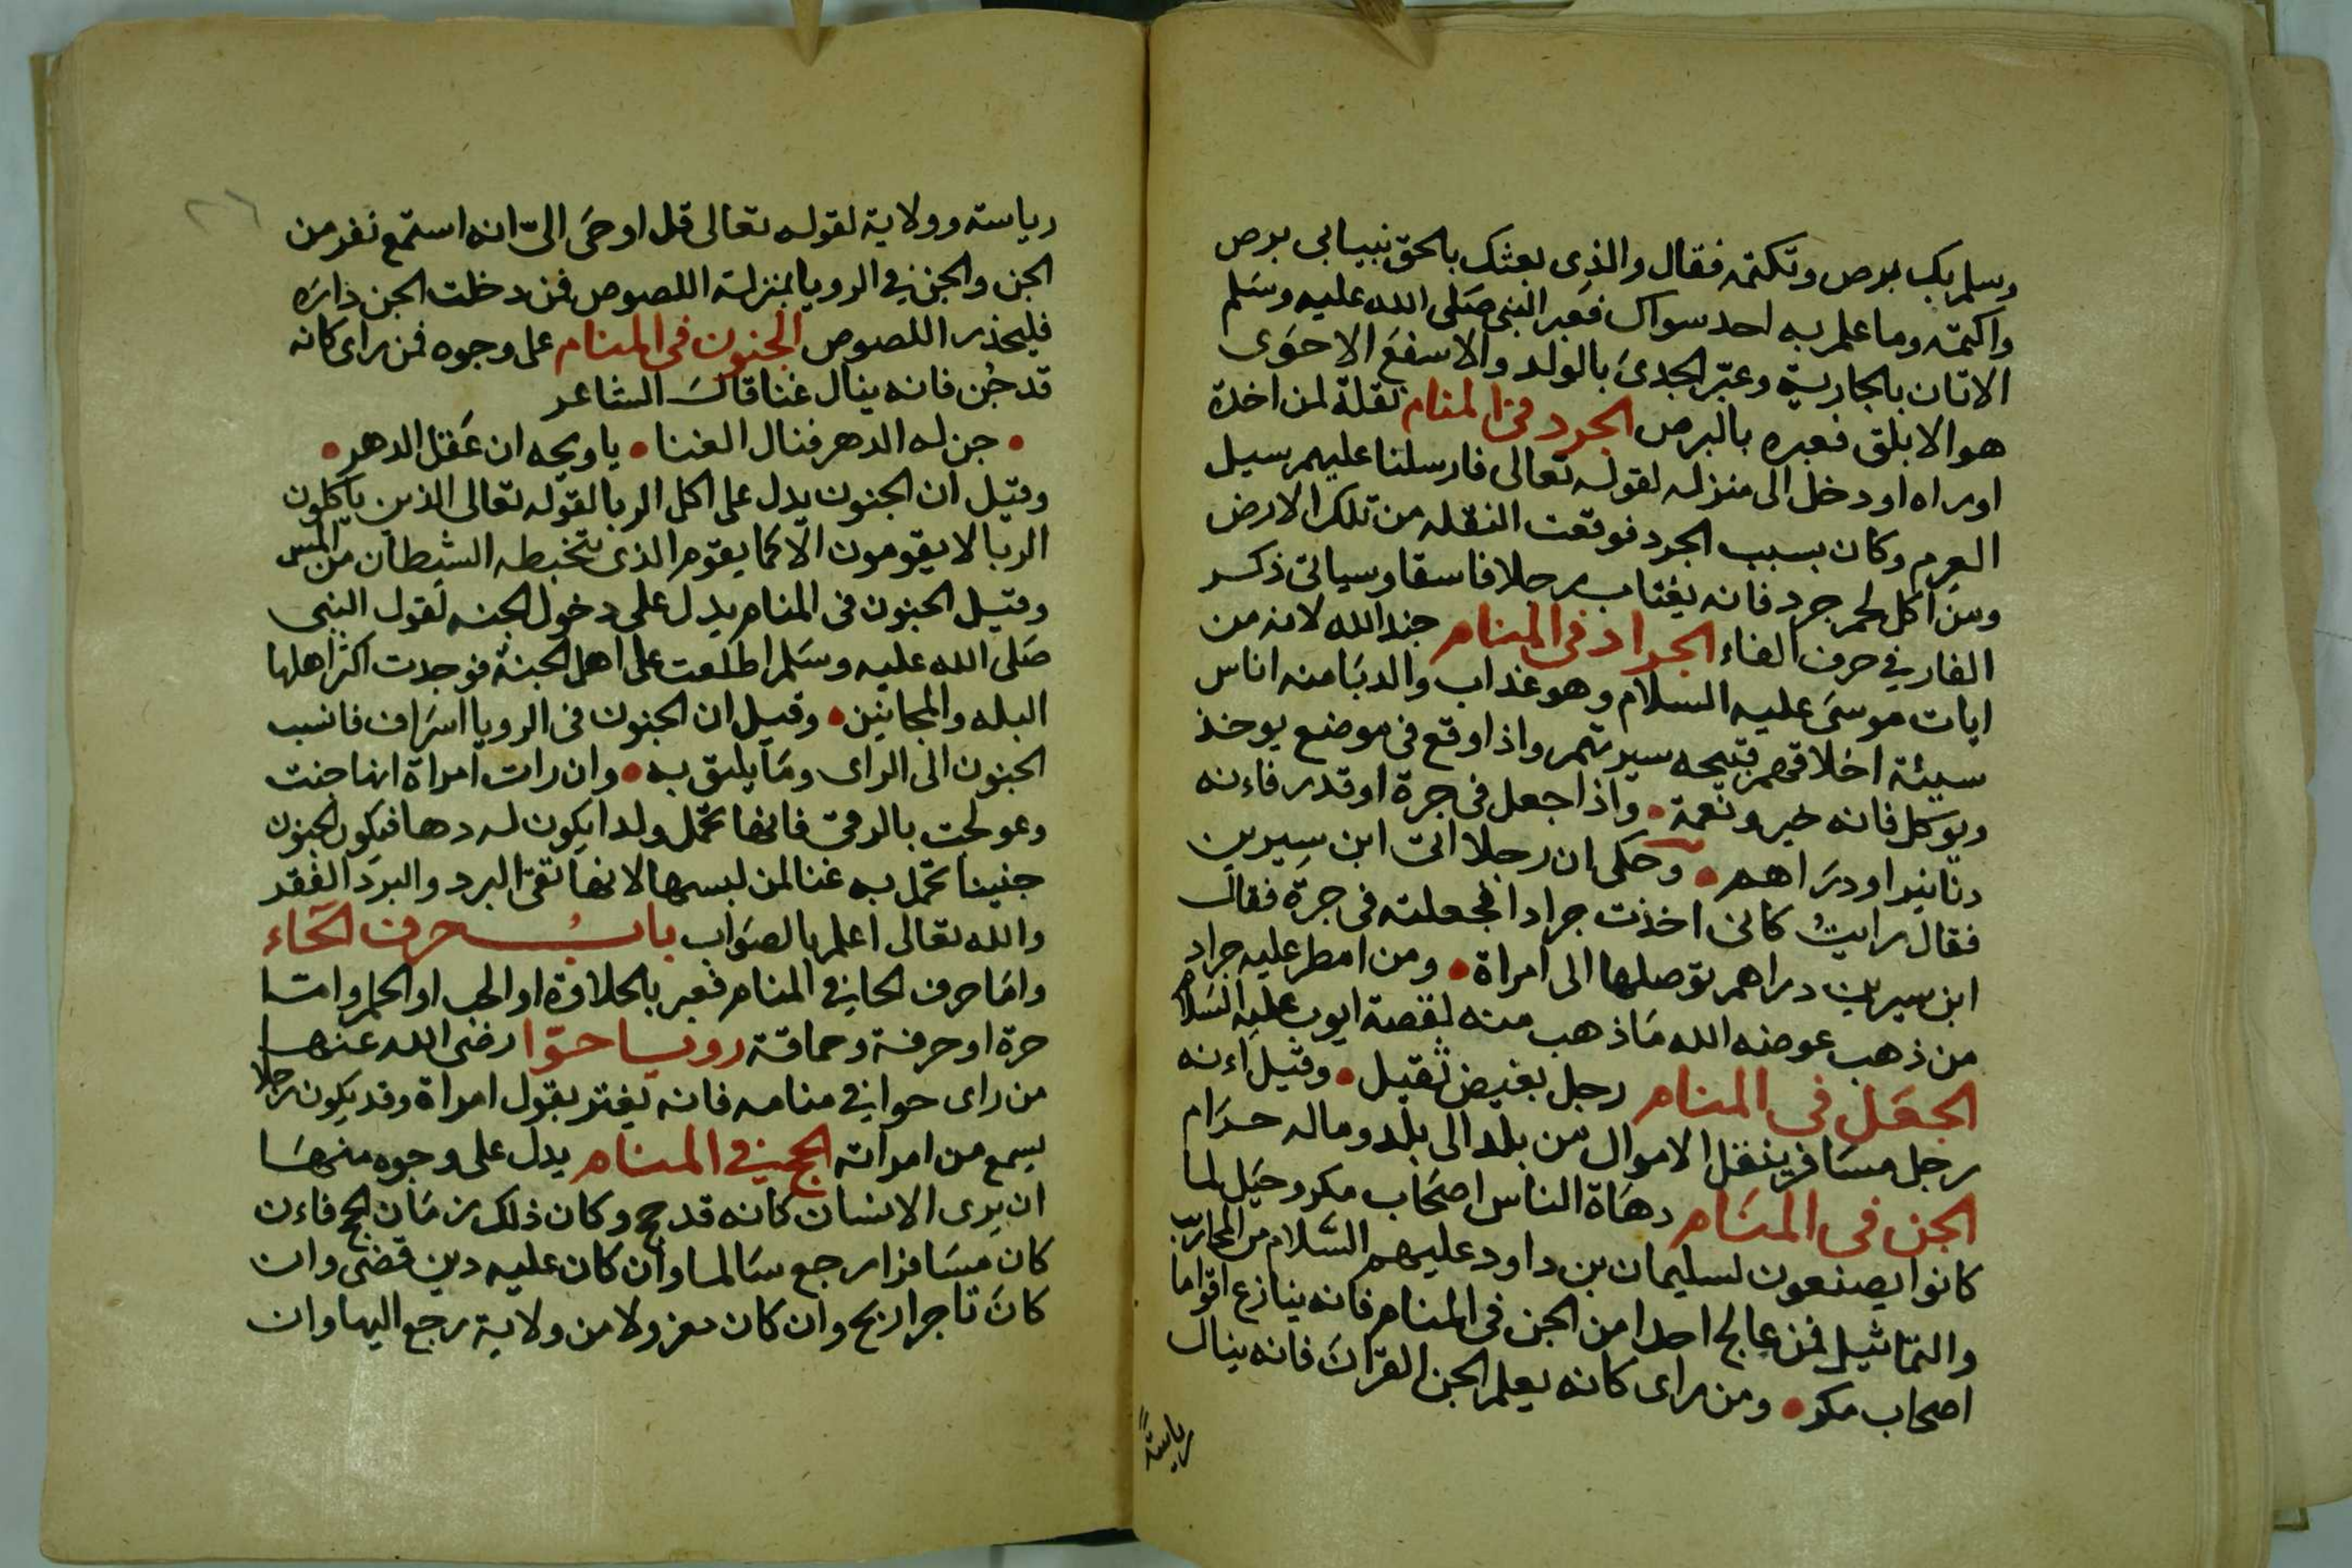 وسلم بك برص وتكتمه فقال والذى بعثك بالحق نبيا بى برص
واكتمه وما علم به احد سواك فعبر النبى صلى الله عليه وسلم
الاتان بالجارية وعبّر الجدى بالولد والاسفع الاحوى
هو الابلق فعبره بالبرص الجرد فى المنام نقلة لمن اخده
او راه او دخل الى منزله لقوله تعالى فارسلنا عليهم سيل
العرم وكان بسبب الجرد فوقعت النقله من تلك الارض
ومن اكل لحم جرد فانه يغتاب رجلا فاسقا وسياتى ذكر
الفار فى حرف الفاء الجراد فى المنام جند الله لانه من
ايات موسى عليه السلام وهو عذاب والدبا منه اناس
سيئة اخلاقهم قبيحه سيرتهم واذا وقع فى موضع يوخذ
ويوكل فانه خير ونعمة واذا جعل فى جرة او قدر فاءنه
دنانير او دراهم وحكى ان رجلا اتى ابن سيرين
فقال رايت كانى اخذت جرادا فجعلته فى جرة فقال
ابن سيرين دراهم توصلها الى امراة ومن امطر عليه جراد
من ذهب عوضه الله ما ذهب منه لقصة ايوب عليه السلام
الجعل فى المنام رجل بغيض ثقيل وقيل اءنه
رجل مسافر ينقل الاموال من بلد الى بلد وماله حرام
الجن فى المنام دهاة الناس اصحاب مكر وحيل لما
كانوا يصنعون لسليمان بن داود عليهم السلام من المحاريب
والتماثيل فمن عالج احدا من الجن فى المنام فانه ينازع اقواما
اصحاب مكر ومن راى كانه يعلم الجن القران فانه ينال
رياسة
٢٦
رياسته وولاية لقوله تعالى قل اوحى الىّ انه استمع نفر من
الجن والجن فى الرويا بمنزلة اللصوص فمن دخلت الجن داره
فليحذر اللصوص الجنون فى المنام على وجوه فمن راى كانه
قد جُن فانه ينال غنا قال الشاعر
جن له الدهر فنال الغنا يا ويحه ان عقل الدهر
وقيل ان الجنون يدل على اكل الربا لقوله تعالى الذين ياكلون
الربا لا يقومون الا كما يقوم الذى يتخبطه الشيطان من المس
وقيل الجنون فى المنام يدل على دخول الجنه لقول النبى
صلى الله عليه وسلم اطلعت على اهل الجنة فوجدت اكثر اهلها
البله والمجانين وقيل ان الجنون فى الرويا اسراف فانسب
الجنون الى الراى وما يليق به وان رات امراة انها جنت
وعولجت بالرقى فانها تحمل ولدا يكون له دها فيكون الجنون
جنينا تحمل به غنا لمن لبسها لانها تقى البرد والبرد الفقر
والله تعالى اعلم بالصواب باب حرف الحاء
واما حرف الحا فى المنام فعبر بالحلاوة او الحب او الحلم واما
حرة او حرفة وحماقة رويا حوّا رضى الله عنها
من راى حوا فى منامه فانه يغتر بقول امراة وقد يكون رجلا
يسمع من امراته الحج فى المنام يدل على وجوه منها
ان يرى الانسان كانه قد حج وكان ذلك زمان الحج فاءن
كان مسافرا رجع سالما وان كان عليه دين قضى وان
كان تاجرا ربح وان كان معزولا من ولاية رجع اليها وان